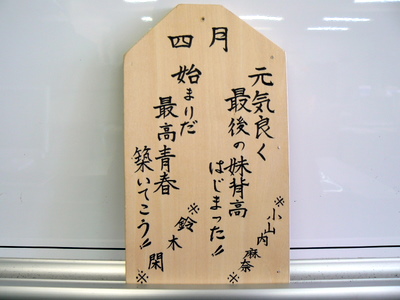 四月
元気良く
最後の妹背高
はじまった!!
※小山内麻奈※
始まりだ
最高青春
築いてこう!!
※鈴木閑※